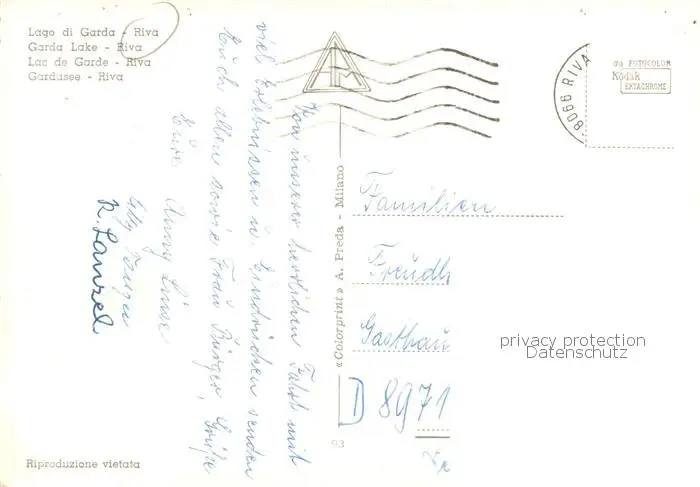 Lago di Garda - Riva
Garda Lake - Riva
Lac de Garde - Riva
Gardasee - Riva
da FOTOCOLOR
Kodak
EKTACHROME
8066 RIVA
Von unserer herrlichen Fahrt mit
viel Erlebnissen u. Eindrücken senden
Euch allen sowie Frau Bürger, Grüße
Eure Anny
R.
Familien
Freudl
Gasthau
D 8971
«Colorprint» A. Preda - Milano
93
privacy protection
Datenschutz
Riproduzione vietata